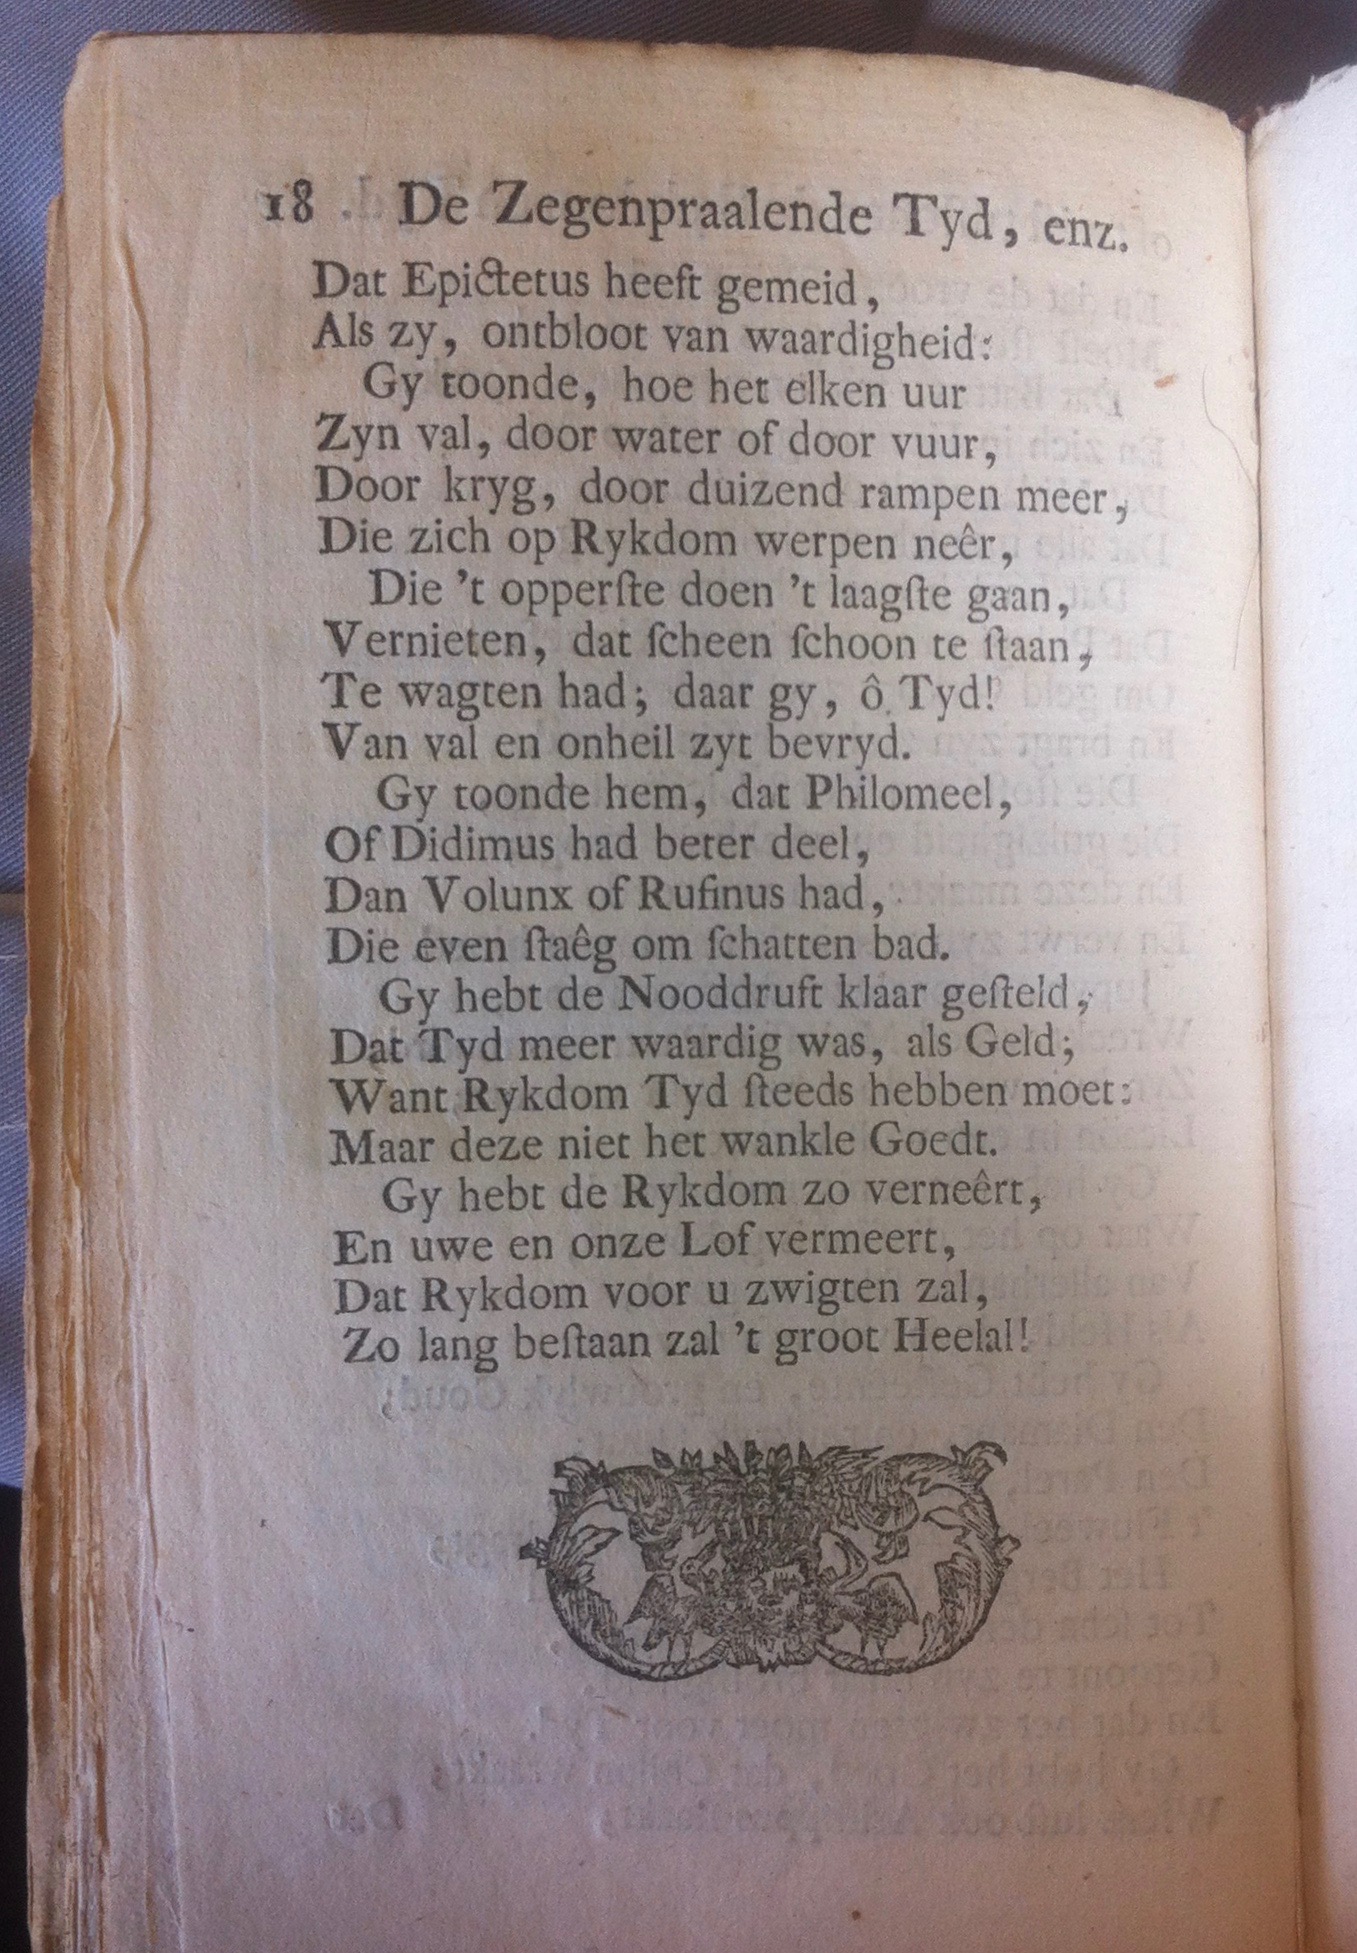 18 De Zegenpraalende Tyd, enz.
Dat Epictetus heeft gemeid,
Als zy, ontbloot van waardigheid:
Gy toonde, hoe het elken uur
Zyn val, door water of door vuur,
Door kryg, door duizend rampen meer,
Die zich op Rykdom werpen neêr,
Die 't opperſte doen 't laagſte gaan,
Vernieten, dat ſcheen ſchoon te ſtaan,
Te wagten had; daar gy, ô Tyd!
Van val en onheil zyt bevryd.
Gy toonde hem, dat Philomeel,
Of Didimus had beter deel,
Dan Volunx of Rufinus had,
Die even ſtaêg om ſchatten bad.
Gy hebt de Nooddruft klaar geſteld,
Dat Tyd meer waardig was, als Geld;
Want Rykdom Tyd ſteeds hebben moet:
Maar deze niet het wankle Goedt.
Gy hebt de Rykdom zo verneêrt,
En uwe en onze Lof vermeert,
Dat Rykdom voor u zwigten zal,
Zo lang beſtaan zal 't groot Heelal!